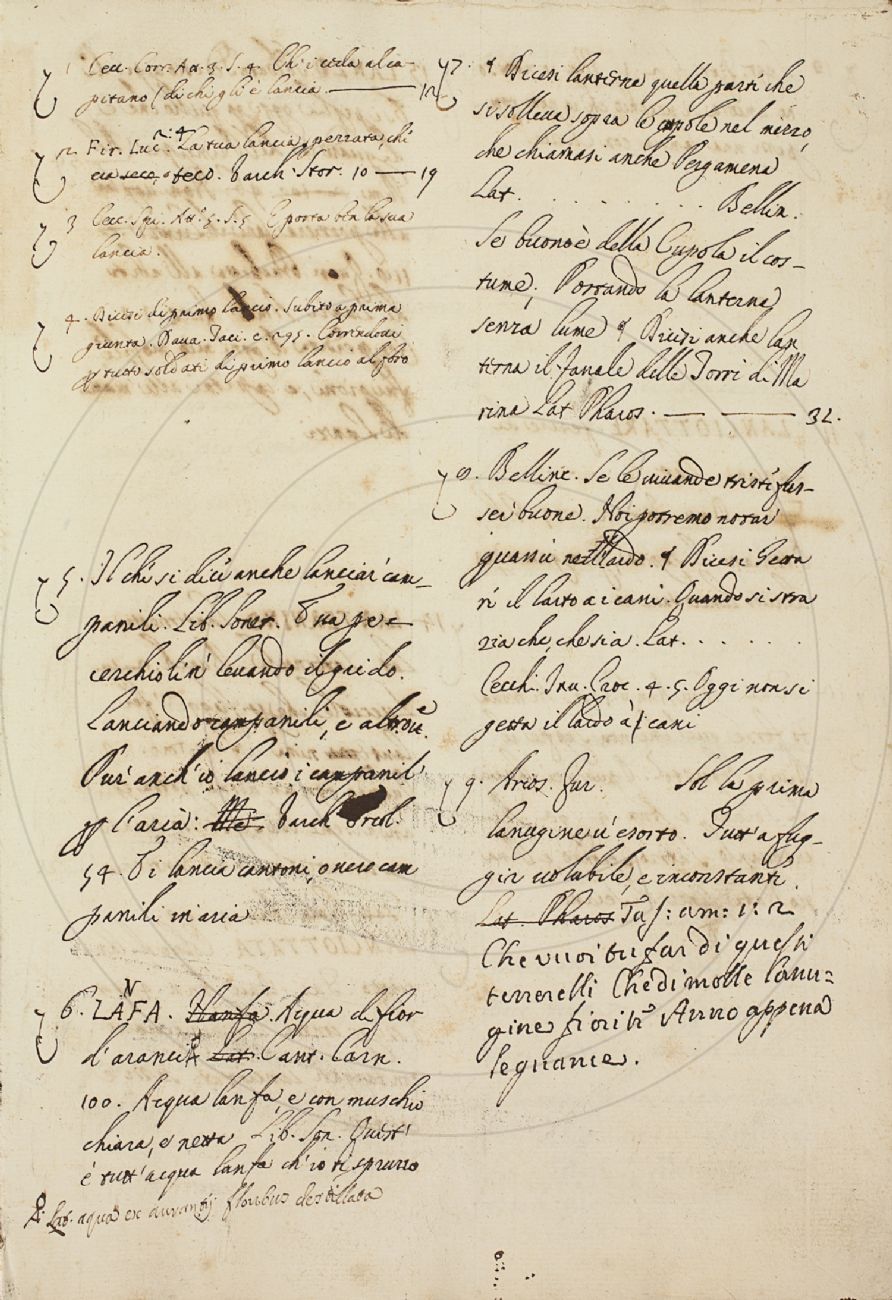 1 Cecc. Corr. At. 3. S. 4. Chi ceda al ca-
pitano / di chi gli è lancia ——— 12
2 Fir. Luc. 2. 4 La tua lancia spezzata, chi
teco. Varch. Stor. 10 —— 19
3 Cecc. Att. 5. S. 5 E porta la sua
lancia.
4. Dicesi di primo lancio. Subito a prima
giunta. Dava. Taci. c. 295. Correndovi
tutto soldati di primo lancio al foro
5. Il che si dice anche lanciar cam-
panili. Lib. Sonet.
cerchiolin' levando il grido.
Lanciando campanili, e altrove.
Pur' anch' io lancio i campanil'
p l'aria: Varch. Ercol.
54. Ti lancia cantoni, o vero cam
panili in aria
6. LANFA. Nanfa. Acqua di fior
d'aranci Lat. Cant. Carn.
100. Acqua lanfa, e con muschio
chiara, e netta. Lib. Son. Quest'
è tutt' acqua lanfa ch' io ti spruzzo
Lat. aqua ex floribus destillata
7. Dicesi lanterna quella parte che
si solleva sopra le cupole nel mezzo,
che chiamasi anche Pergamena
Lat. . . . . . . . . . . Bellin.
Se buono è della Cupola il cos-
tume, Portando la lanterna
senza lume Dicesi anche lan
terna il fanale delle Torri di Ma
rina Lat Pharos. —— —— 32.
8. Bellinc. Se le vivande triste fus-
sei buone. Noi potremo notar
quassù nel lardo. Dicesi Getta
re il lardo a i cani. Quando si stra
zia che che sia. Lat. . . . . . .
Cecchi. Inu. Croc. 4. 5. Oggi non si
getta il lardo a' cani
9. Arios. Fur. Sol la prima
lanugine v' esorto. Tutt' a fug-
gir volubile, e inconstanti.
Lat. Pharos Tas: am: 1: 2
Che vuoi tu far di questi
tenerelli Che di molle lanu=
gine fiorite Anno appena
le guancie.